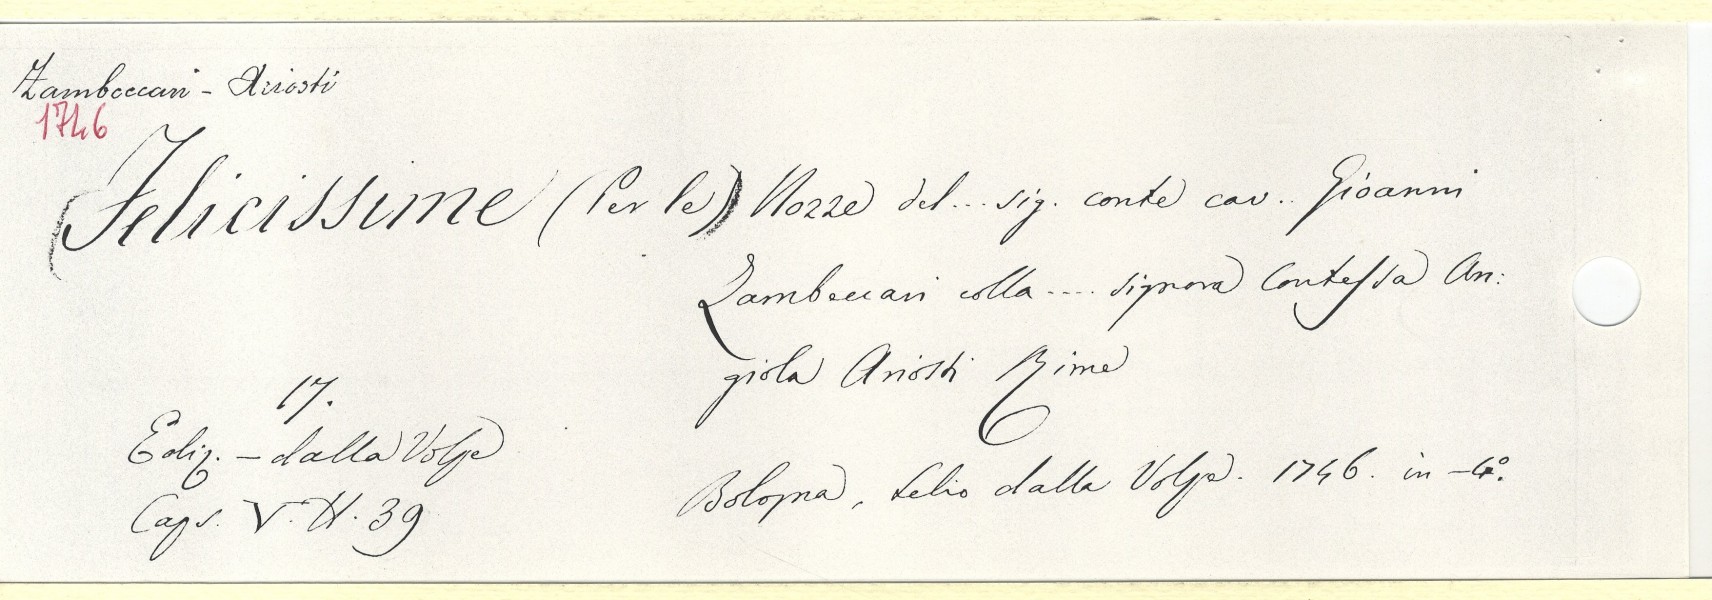 Zambeccari - Ariosti
1746
(Felicissime (Per le)) Nozze del... sig. conte cav.. Gioanni
Zambeccari colla .... signora Contessa An:
giola Ariosti Rime
17.
Ediz. - dalla Volpe
Caps. V. H. 39
Bologna, Lelio dalla Volpe. 1746. in -4º.